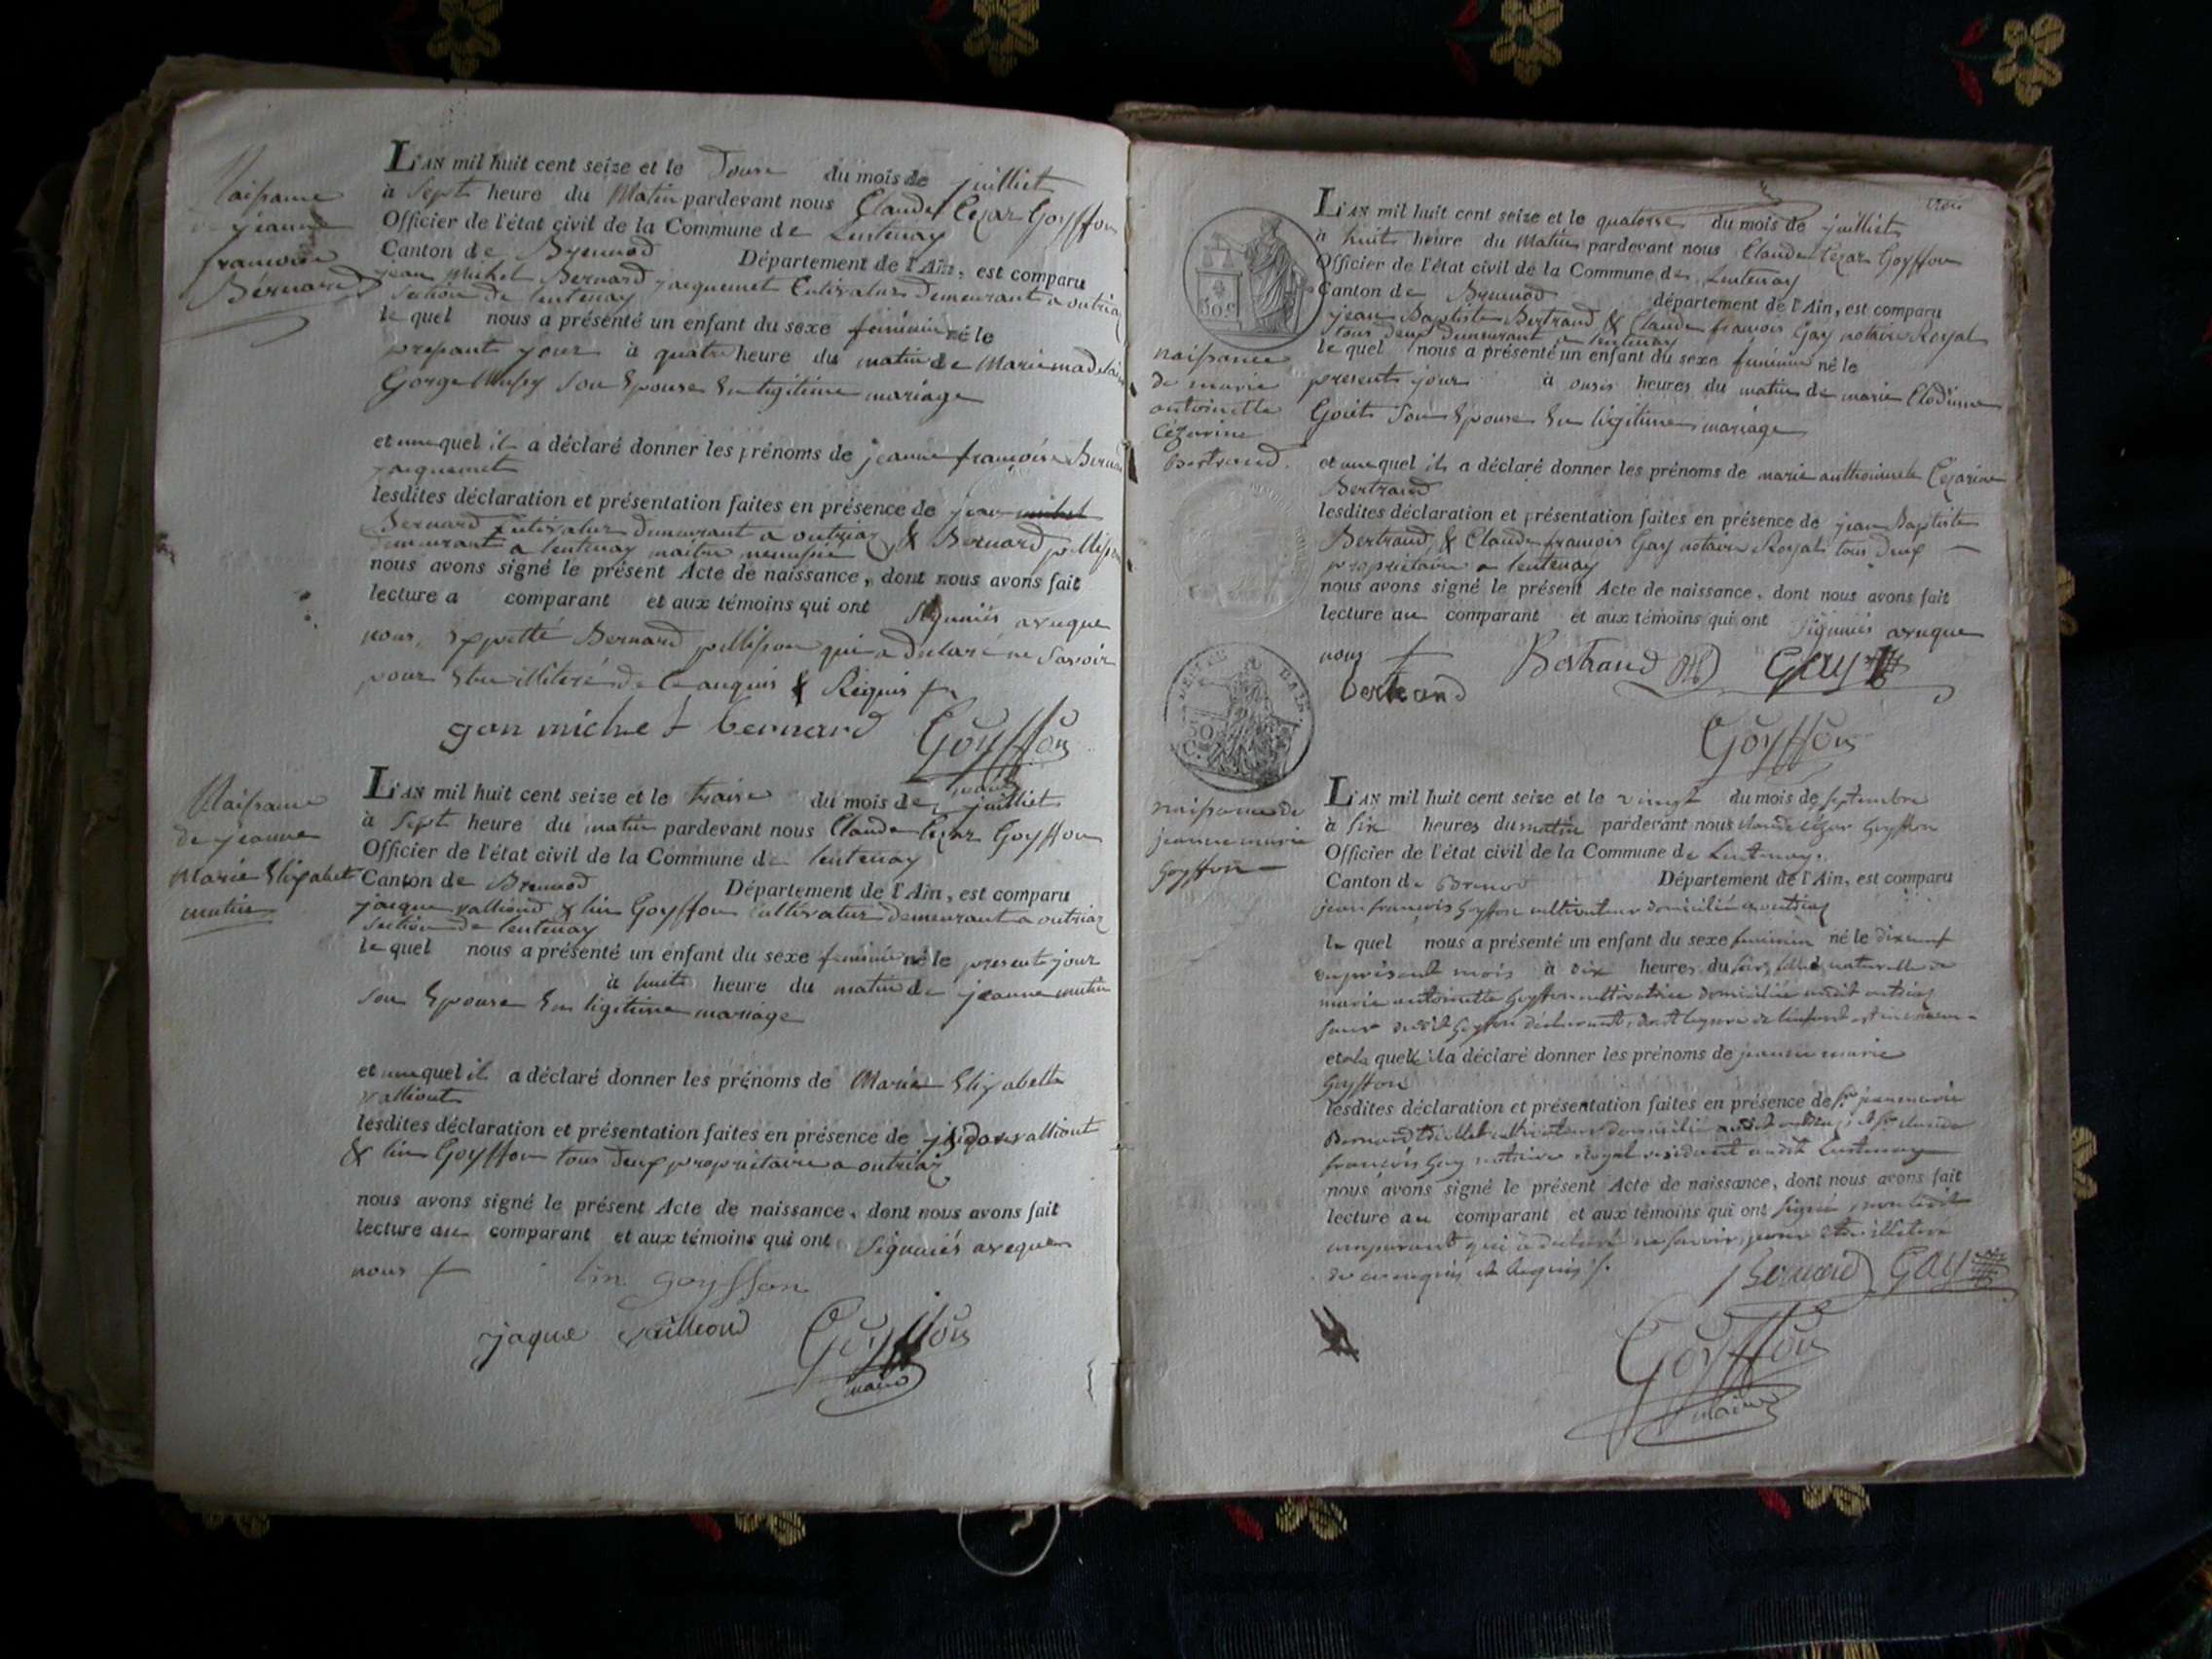 Naissance
jeanne
francoise
Bernard
L'AN mil huit cent seize et le Douse du mois de juilliet
à Sept heure du Matin pardevant nous Claude Cezar Goyffon
Officier de l'état civil de la Commune de Lentenay
Canton de Brennod Département de l'Ain, est comparu
jean michel Bernard jacquemet Cultivatur demeurant a outriaz
Section de lentenay
le quel nous a présenté un enfant du sexe feminin né le
present jour à quatre heure du matin de Marie madelaine
Gorge son Epouse En legitime mariage
et auquel il a déclaré donner les prénoms de jeanne francoise Bernard
jacquemet
lesdites déclaration et présentation faites en présence de jean michel
Bernard Cultivatur demeurant a outriaz & Bernard
demeurant a lentenay maitre
nous avons signé le présent Acte de naissance, dont nous avons fait
lecture a comparant et aux témoins qui ont signiés aveque
nous, Bernard qui a Declaré ne Savoir
pour Etre illiteré de Ce anquis & Requis
gan michel bernard Goyffon
maire
Naissance
de jeanne
Marie Elizabet
mutin
L'AN mil huit cent seize et le traise du mois de juilliet
à Sept heure du matin pardevant nous Claude Cezar Goyffon
Officier de l'état civil de la Commune de lentenay
Canton de Brennod Département de l'Ain, est comparu
jacque valliond & lin Goyffon Cultivatur demeurant a outriaz
Section de lentenay
le quel nous a présenté un enfant du sexe feminin né le present jour
à huit heure du matin de jeanne mutin
son Epouse En legitime mariage
et auquel il a déclaré donner les prénoms de Marie Elizabette
valliont
lesdites déclaration et présentation faites en présence de valliont
& lin Goyffon tous Deux propriétaire a outriaz
nous avons signé le présent Acte de naissance, dont nous avons fait
lecture au comparant et aux témoins qui ont signiés aveque
nous
lin goyffon
jaque vailliond Goyffon
maire
naissance
de marie
antoinette
Cézarine
Bertrand.
L'AN mil huit cent seize et le quatorse du mois de juilliet
à huit heure du Matin pardevant nous Claude Cezar Goyffon
Officier de l'état civil de la Commune de Lentenay
Canton de Brennod département de l'Ain, est comparu
jean Baptiste Bertrand & Claude francois Gay notaire Royal
tous deux demeurant a lentenay
le quel nous a présenté un enfant du sexe feminin né le
present jour à heures du matin de marie Clodinne
Gouit son Epouse En legitime mariage
et auquel il a déclaré donner les prénoms de marie anthoinnete Cezarine
Bertrand
lesdites déclaration et présentation faites en présence de jean Baptiste
Bertrand & Claude francois Gay notaire Royal tous deux
propriétaire a lentenay
nous avons signé le présent Acte de naissance, dont nous avons fait
lecture au comparant et aux témoins qui ont signiés aveque
nous Bertrand GAY
bertrand
Goyffon
naissance de
jeanne marie
Goyffon
L'AN mil huit cent seize et le vingt du mois de septembre
à six heures du matin pardevant nous claude cézar Goyffon
Officier de l'état civil de la Commune de Lentenay.
Canton de Brenod Département de l'Ain, est comparu
jean françois Goyffon cultivateur domicilié a outriaz
le quel nous a présenté un enfant du sexe feminin né le dixneuf
du présent mois à dix heures du soir fille naturelle de
marie antoinette Goyffon cultivatrice domiciliée audit outriaz
soeur dudit Goyffon déclarant, dont le pere de l'enfant est inconnu
et à la quelle il a déclaré donner les prénoms de jeanne marie
Goyffon
lesdites déclaration et présentation faites en présence de Sr jean marie
Bernard cultivateur domicilié audit outriaz, & Sr claude
françois Gay notaire Royal residant audit Lentenay
nous avons signé le présent Acte de naissance, dont nous avons fait
lecture au comparant et aux témoins qui ont signé, non ledit
comparant qui a declaré ne savoir, pour etre illiteré
de ce enquis et requis
Bernard GAY
Goyffon
maire